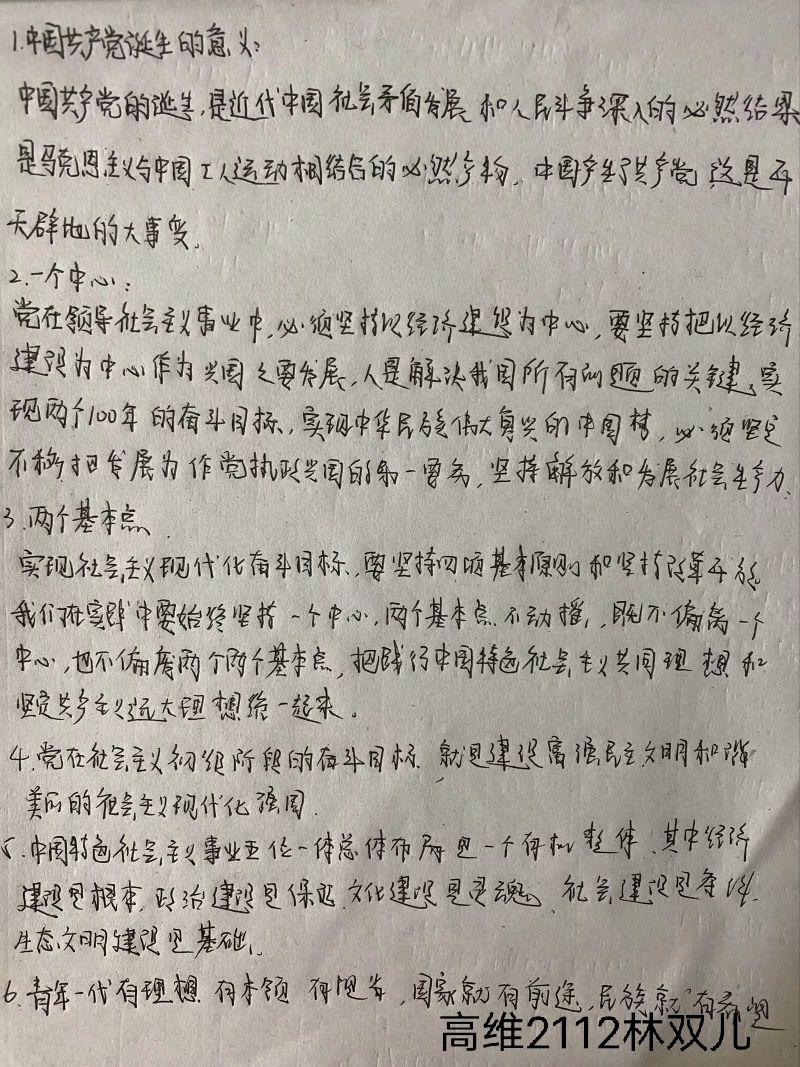 1.中国共产党诞生的意义:
中国共产党的诞生,是近代中国社会矛盾发展和人民斗争深入的必然结果
是马克思主义与中国工人运动相结合的必然产物,中国产生了共产党 这是开
天辟地的大事变。
2.一个中心:
党在领导社会主义事业中,必须坚持以经济建设为中心,要坚持把以经济
建设为中心作为兴国之要发展,人是解决我国所有问题的关键,实
现两个100年的奋斗目标,实现中华民族伟大复兴的中国梦,必须坚定
不移把发展为作党执政兴国的第一要务,坚持解放和发展社会生产力
3.两个基本点
实现社会主义现代化奋斗目标,要坚持四项基本原则和坚持改革开放
我们在实践中要始终坚持一个中心,两个基本点不动摇,既不偏离一个
中心,也不偏废两个两个基本点,把践行中国特色社会主义共同理想和
坚定共产主义远大理想统一起来。
4.党在社会主义初级阶段的奋斗目标 就是建设富强民主文明和谐
美丽的社会主义现代化强国
5.中国特色社会主义事业五位一体总体布局是一个有机整体,其中经济
建设是根本,政治建设是保证,文化建设是灵魂,社会建设是条件,
生态文明建设是基础。
6.青年一代有理想 有本领 有担当,国家就有前途,民族就有希望
高维2112林双儿